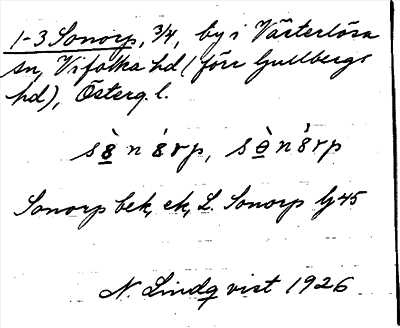 1-3 Sonorp, 3/4, by i Västerlösa
sn, Vifolka hd (förr Gullbergs
hd), Österg. l.
Sonorp bek, ek, L. Sonorp lj 45
N. Lindqvist 1926